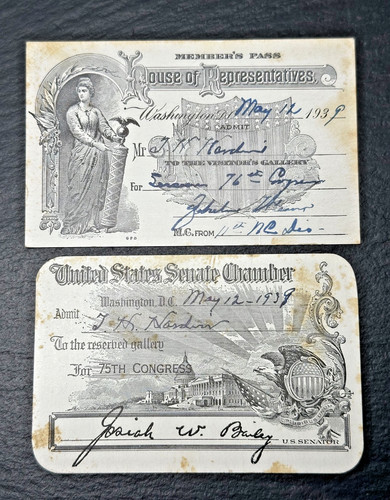 MEMBER'S PASS
House of Representatives.
Washington D.C. May 12 1939
ADMIT
Mr T. H. Hardin
TO THE VISITOR'S GALLERY
For Session 76th Congress
M.C. FROM 11th N.C. Dis.
United States Senate Chamber
Washington D.C. May 12-1939
Admit T. H. Hardin
To the reserved gallery
For 75TH CONGRESS
Josiah W. Bailey
U.S. SENATOR